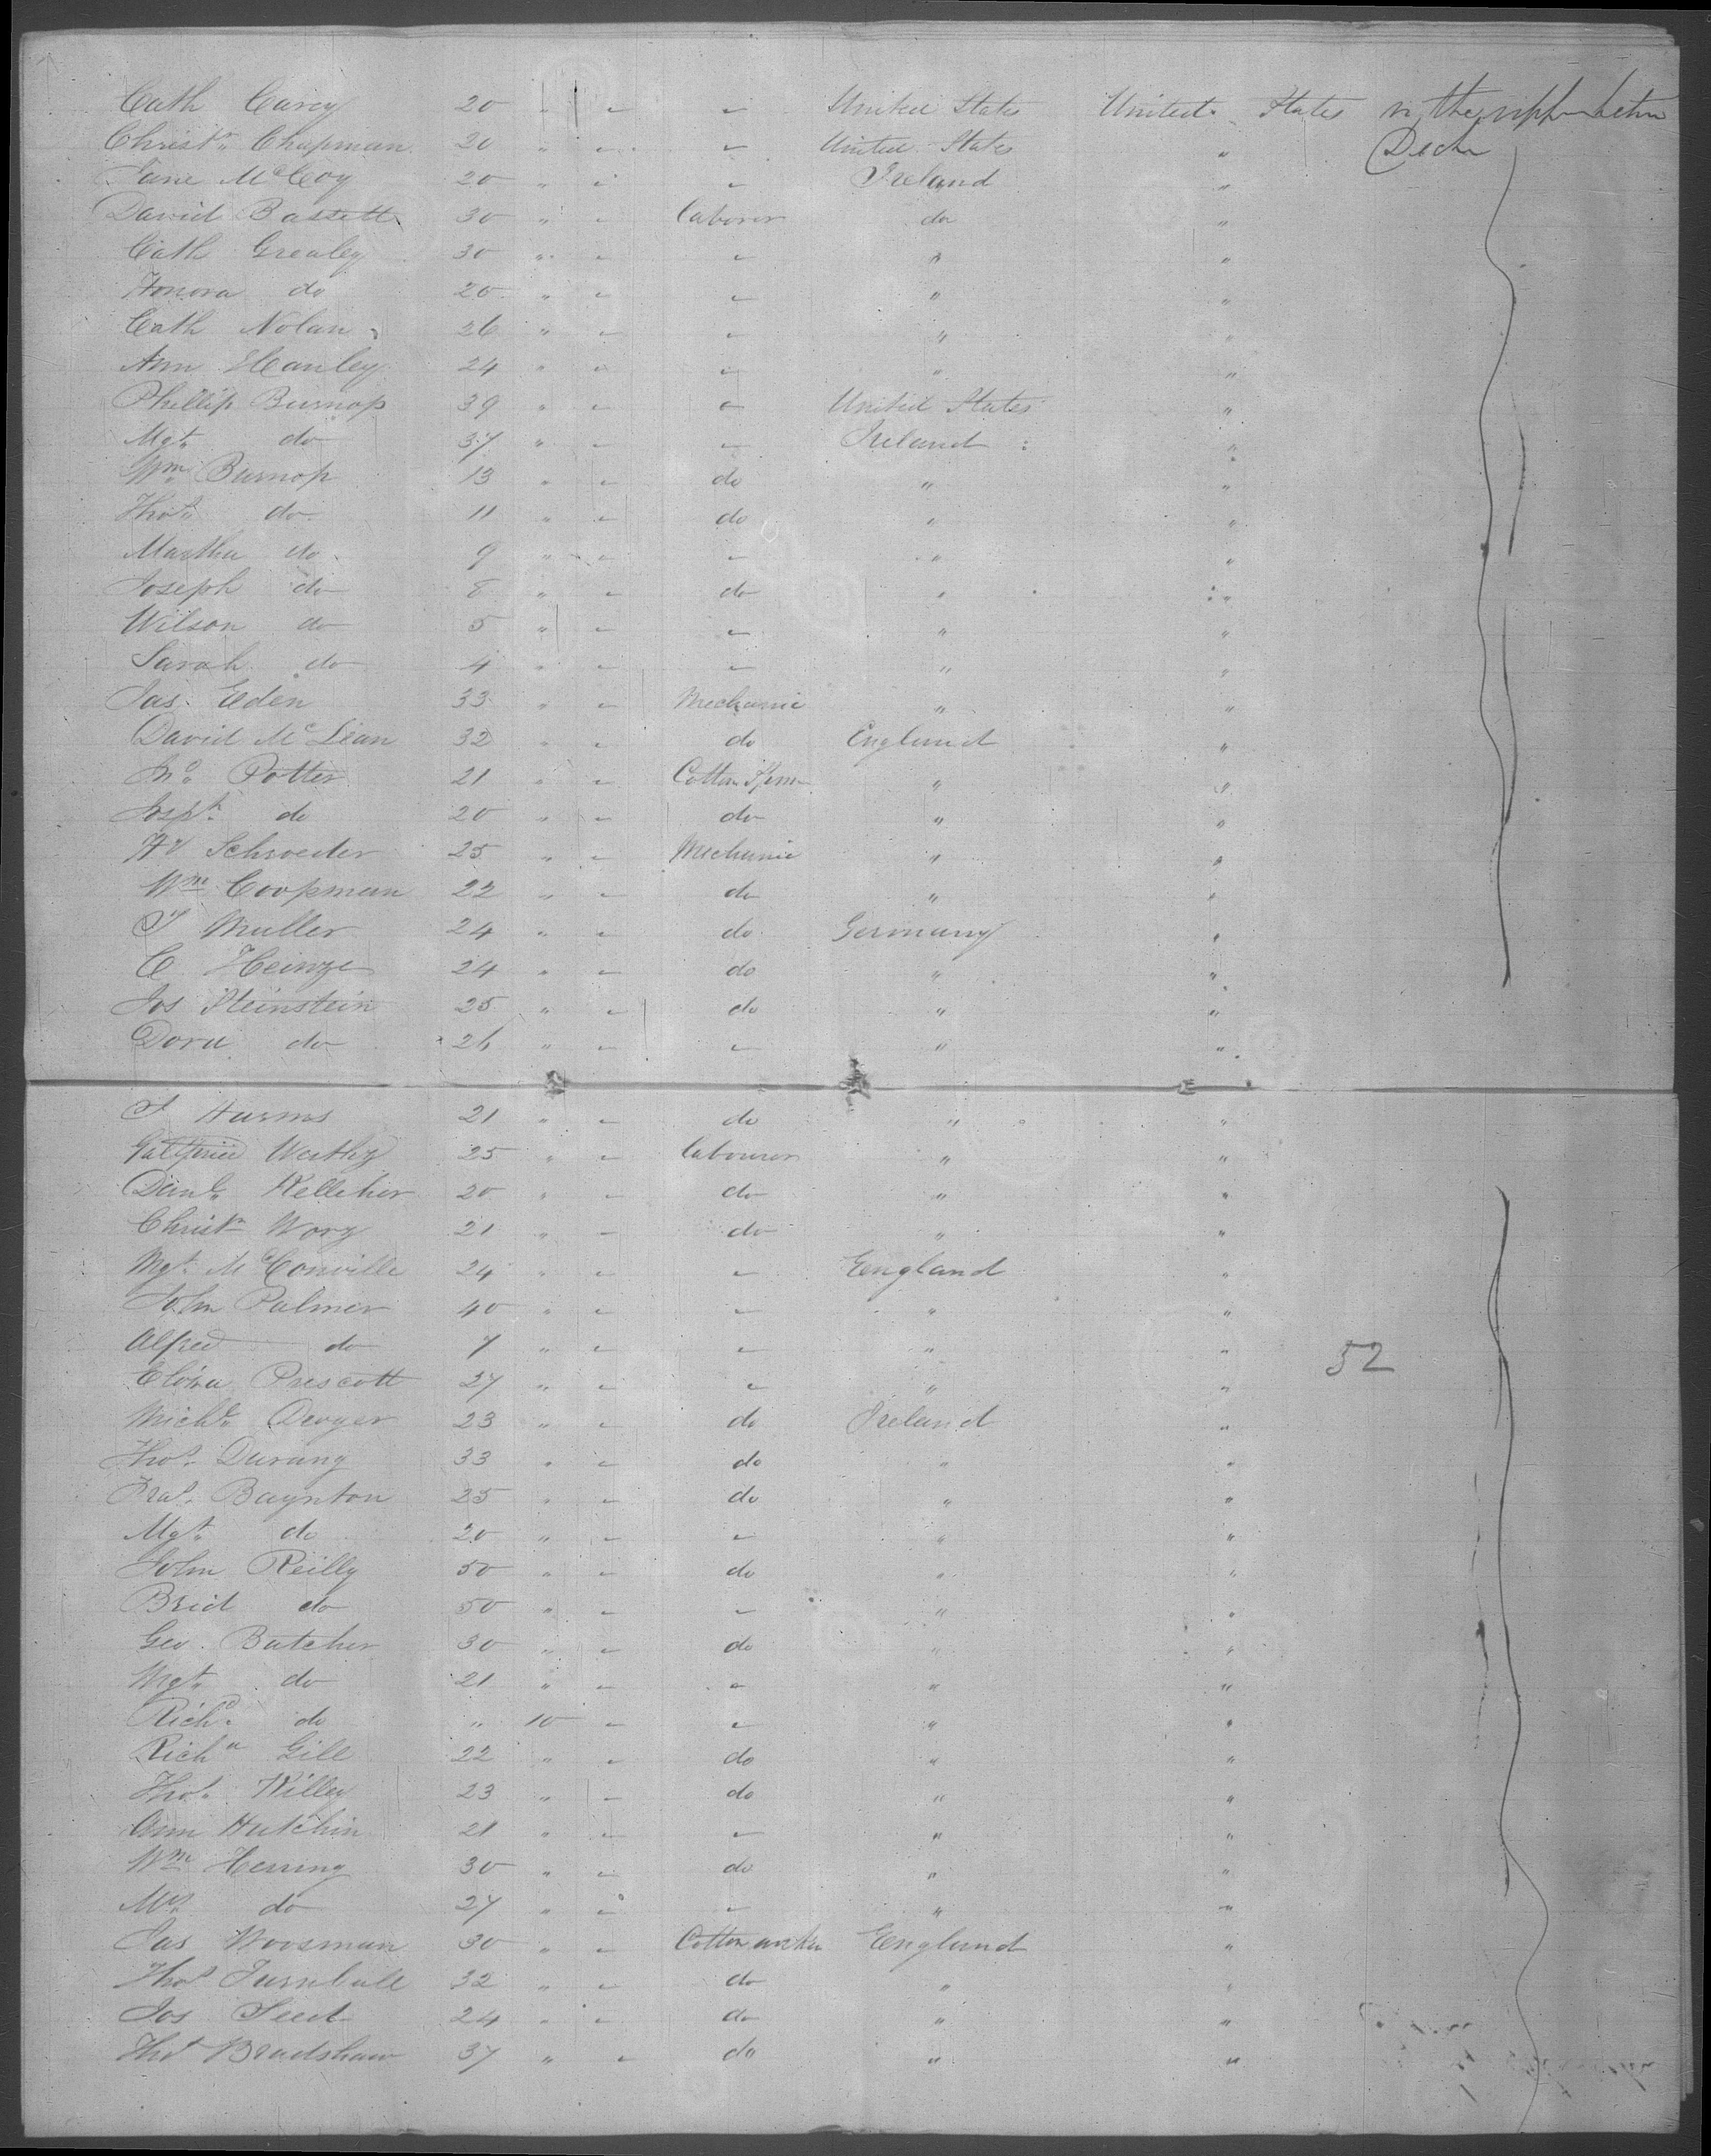 Cath Carey 20 " - - United States United States in the upper between
Christn. Chapman 20 " - - United States " Decks
Jane McCoy 20 " - - Ireland "
David Bassett 30 " - laborer do "
Cath Grealey 30 " - - " "
Honora do 20 " - - " "
Cath Nolan 26 " - - " "
Ann Hanley 24 " - - " "
Phillip Burnop 39 " - - United States "
Mgt. do 37 " - - Ireland "
Wm. Burnop 13 " - do " "
Thos. do 11 " - do " "
Martha do 9 " - - " "
Joseph do 8 " - do " "
Wilson do 5 " - - " "
Sarah do 4 " - - " "
Jas. Eden 33 " - Mechanic " "
David McLean 32 " - do England "
Jno. Potter 21 " - Cotton Spinn " "
Josph. do 20 " - do " "
Hy Schroeder 25 " - Mechanic " "
Wm Coopman 22 " - do " "
J Muller 24 " - do Germany "
C Heinze 24 " - do " "
Jos Steinstein 25 " - do " "
Dora do 26 " - - " "
J Harms 21 " - do " "
25 " - labourer " "
Danl. Kelleher 20 " - do " "
Christn 21 " - do " "
Mgt. McConville 24 " - - England "
John Palmer 40 " - - " "
Alfred do 7 " - - " "
52
Eliza Prescott 27 " - - " "
Michl. Dwyer 23 " - do Ireland "
Thos. Durang 33 " - do " "
Fras. Baynton 25 " - do " "
Mgt. do 20 " - - " "
John Reilly 50 " - do " "
Brid do 50 " - - " "
Geo. Butcher 30 " - do " "
Mgt. do 21 " - - " "
Richd. do " 10 - - " "
Richd Gill 22 " - do " "
Thos. Willey 23 " - do " "
Ann Hutchin 21 " - - " "
Wm Herring 30 " - do " "
Mrs. do 27 " - - " "
Jas Woosman 30 " - Cotton worker England "
Thos Turnbull 32 " - do " "
Jos Seed 24 " - do " "
Thos Bradshaw 37 " - do " "